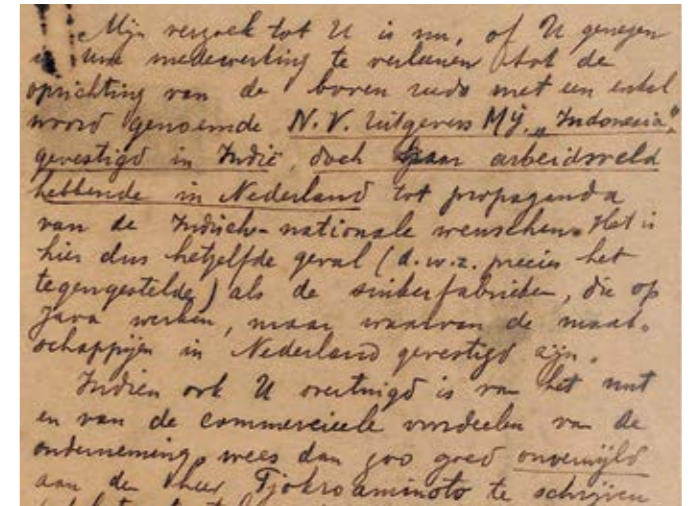 Mijn verzoek tot U is nu, of U genegen
is uw medewerking te verleenen tot de
oprichting van de boven reeds met een enkel
woord genoemde N.V. Uitgevers Mij. „Indonesia",
gevestigd in Indië, doch haar arbeidsveld
hebbende in Nederland tot propaganda
van de Indisch-nationale wenschen. Het is
hier dus hetzelfde geval (d.w.z. precies het
tegengestelde) als de suikerfabrieken, die op
Java werken, maar waarvan de maat-
schappijen in Nederland gevestigd zijn.
Indien ook U overtuigd is van het nut
en van de commercieele voordeelen van de
onderneming, wees dan zoo goed onverwijld
aan den heer Tjokroaminoto te schrijven